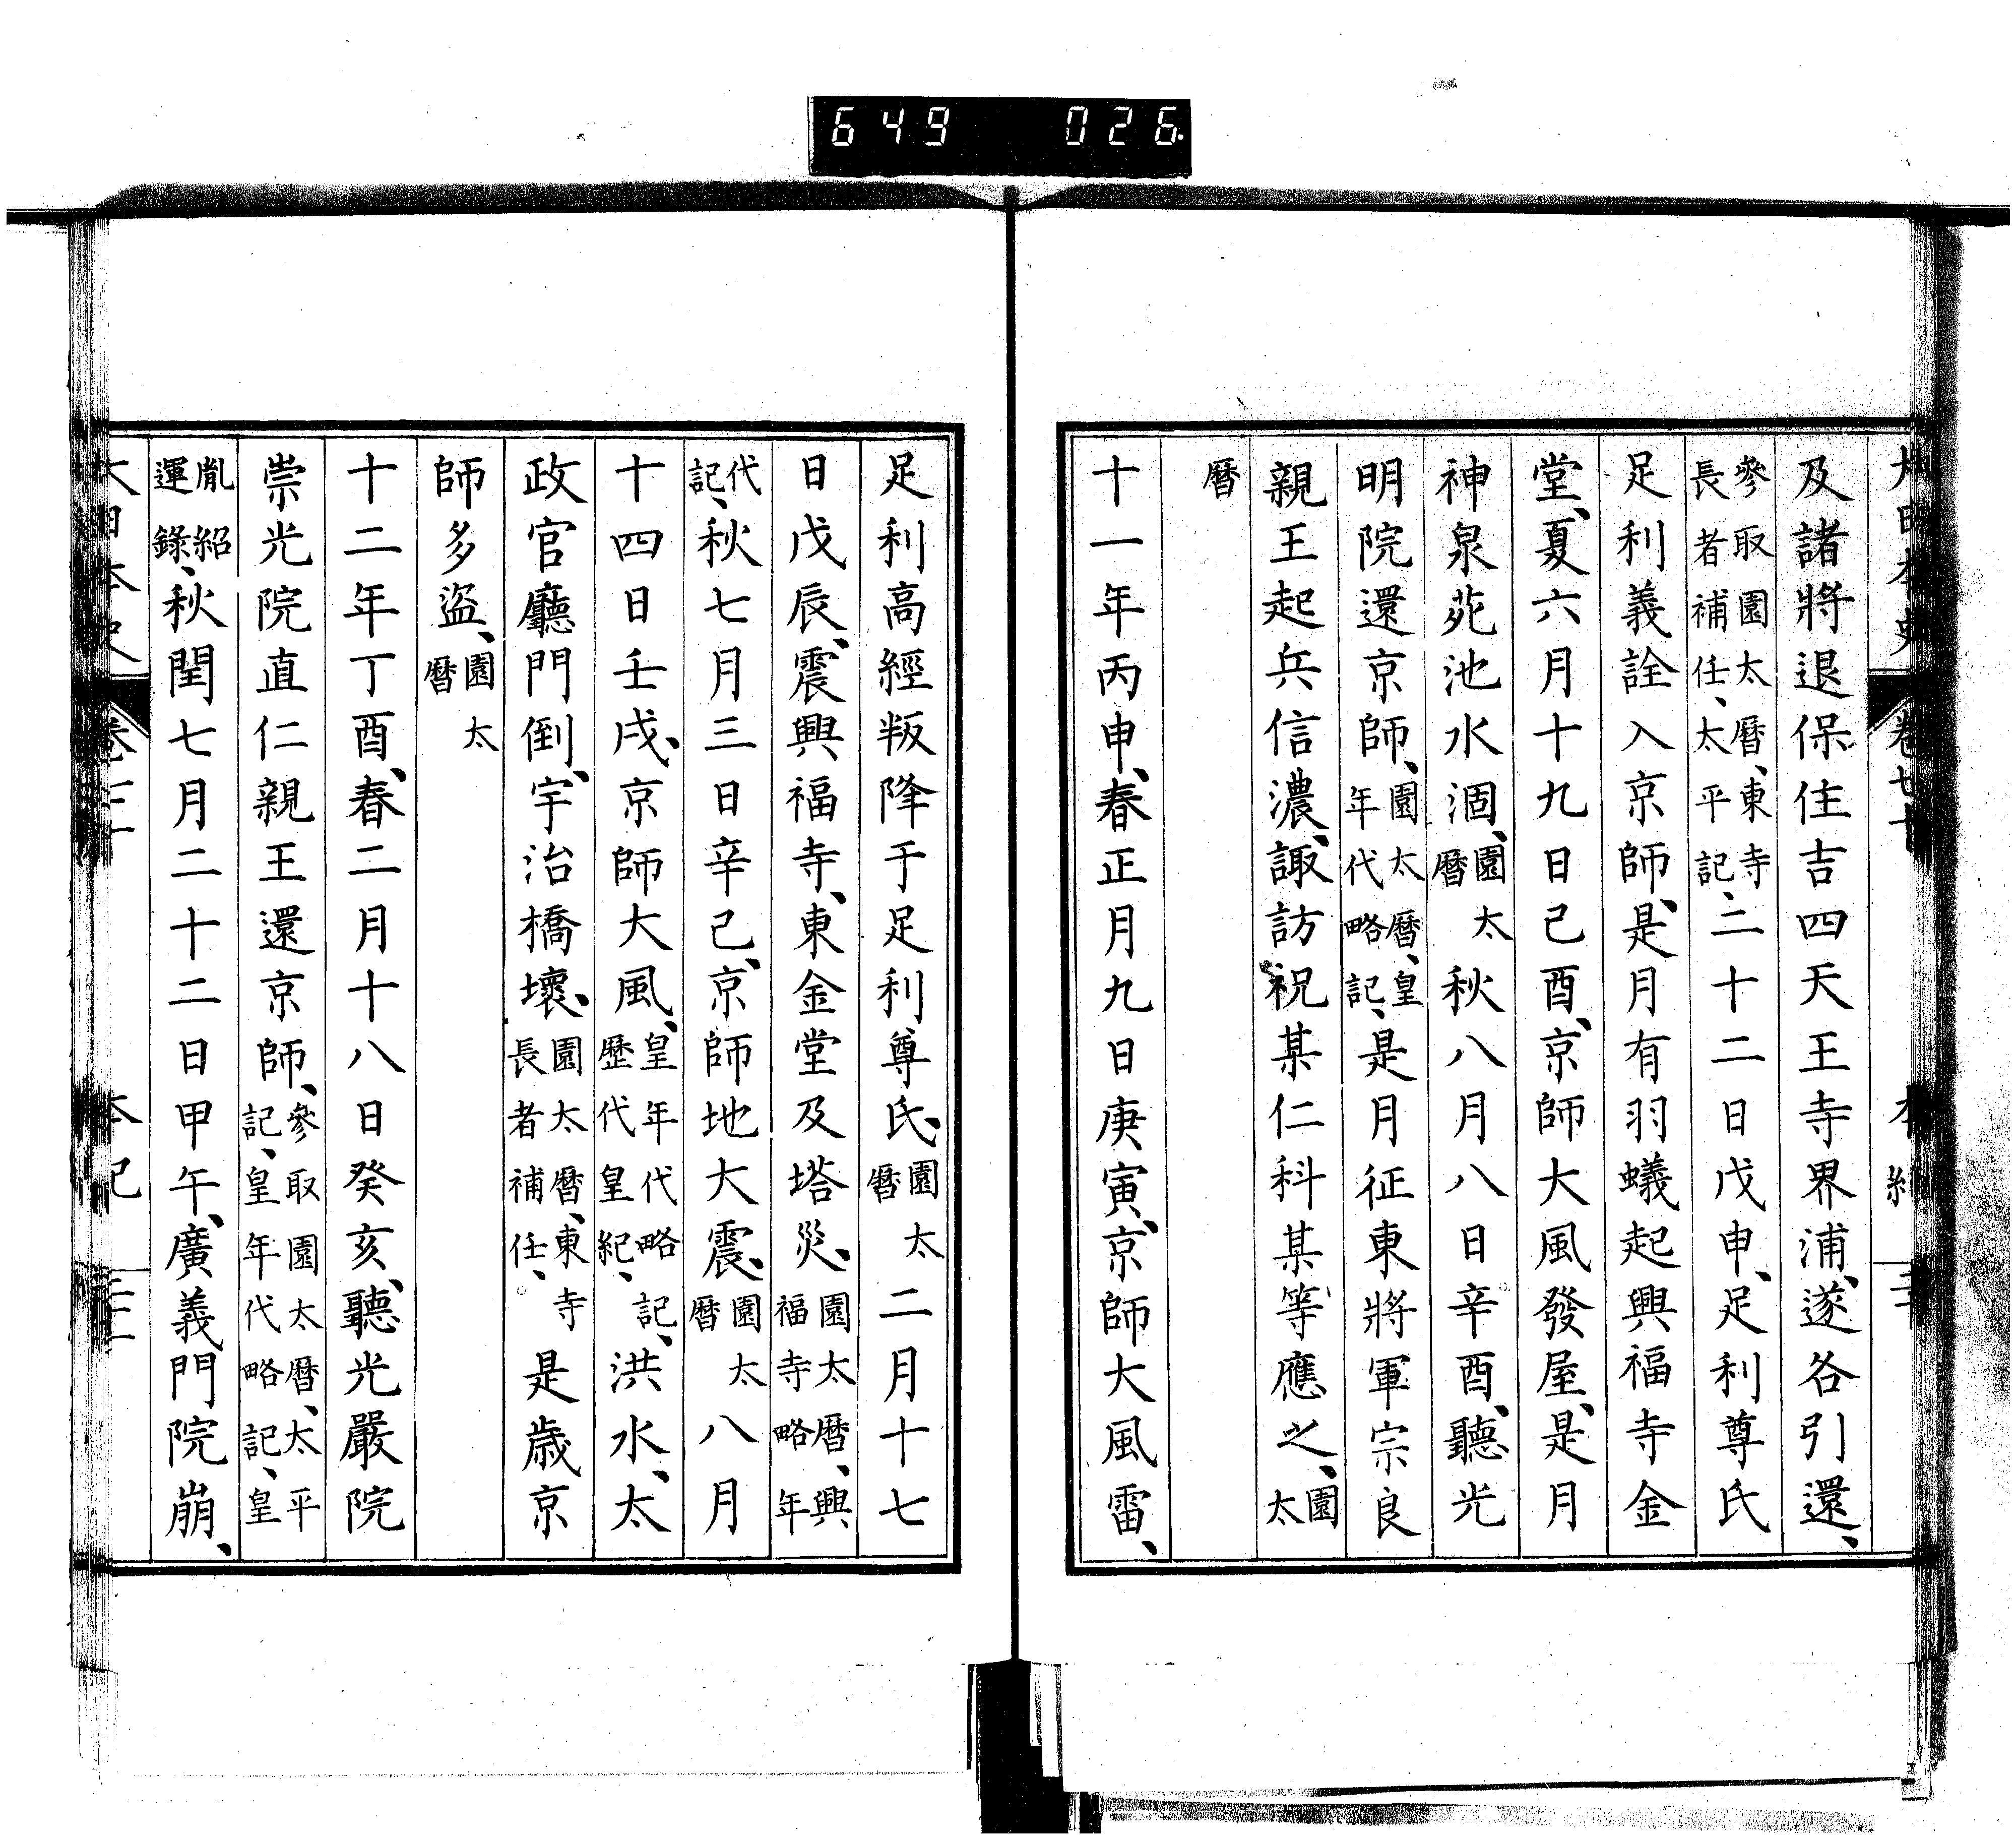 649 026
大日本史 卷七十 本紀
及諸將退保住吉四天王寺界浦、遂各引還、
參取園太曆、東寺長者補任、太平記、二十二日戊申、足利尊氏
足利義詮入京師、是月有羽蟻起興福寺金
堂、夏六月十九日己酉、京師大風發屋、是月
神泉苑池水涸、園太曆秋八月八日辛酉、聽光
明院還京師、園太曆、皇年代略記、是月征東將軍宗良
親王起兵信濃、諏訪祝某仁科某等應之、園太
曆
十一年丙申、春正月九日庚寅、京師大風雷、
足利高經叛降于足利尊氏、園太曆二月十七
日戊辰、震興福寺、東金堂及塔災、園太曆、興福寺略年
代記、秋七月三日辛巳、京師地大震、園太曆八月
十四日壬戌、京師大風、皇年代略記、歷代皇紀、洪水、太
政官廳門倒、宇治橋壞、園太曆、東寺長者補任、是歲京
師多盜、園太曆
十二年丁酉、春二月十八日癸亥、聽光嚴院
崇光院直仁親王還京師、參取園太曆、太平記、皇年代略記、皇
胤紹運錄、秋閏七月二十二日甲午、廣義門院崩、
大日本史 本紀